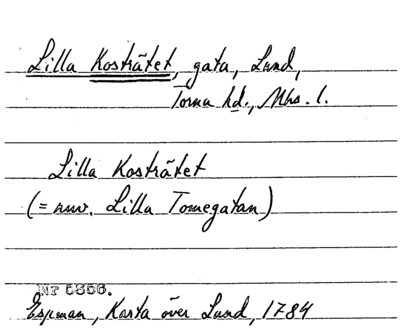 Lilla Kosträtet, gata, Lund,
Torna hd., Mhs. l.
Lilla Kosträtet
(= nuv. Lilla Tomegatan)
Nr 5856.
Espman, Karta över Lund, 1784